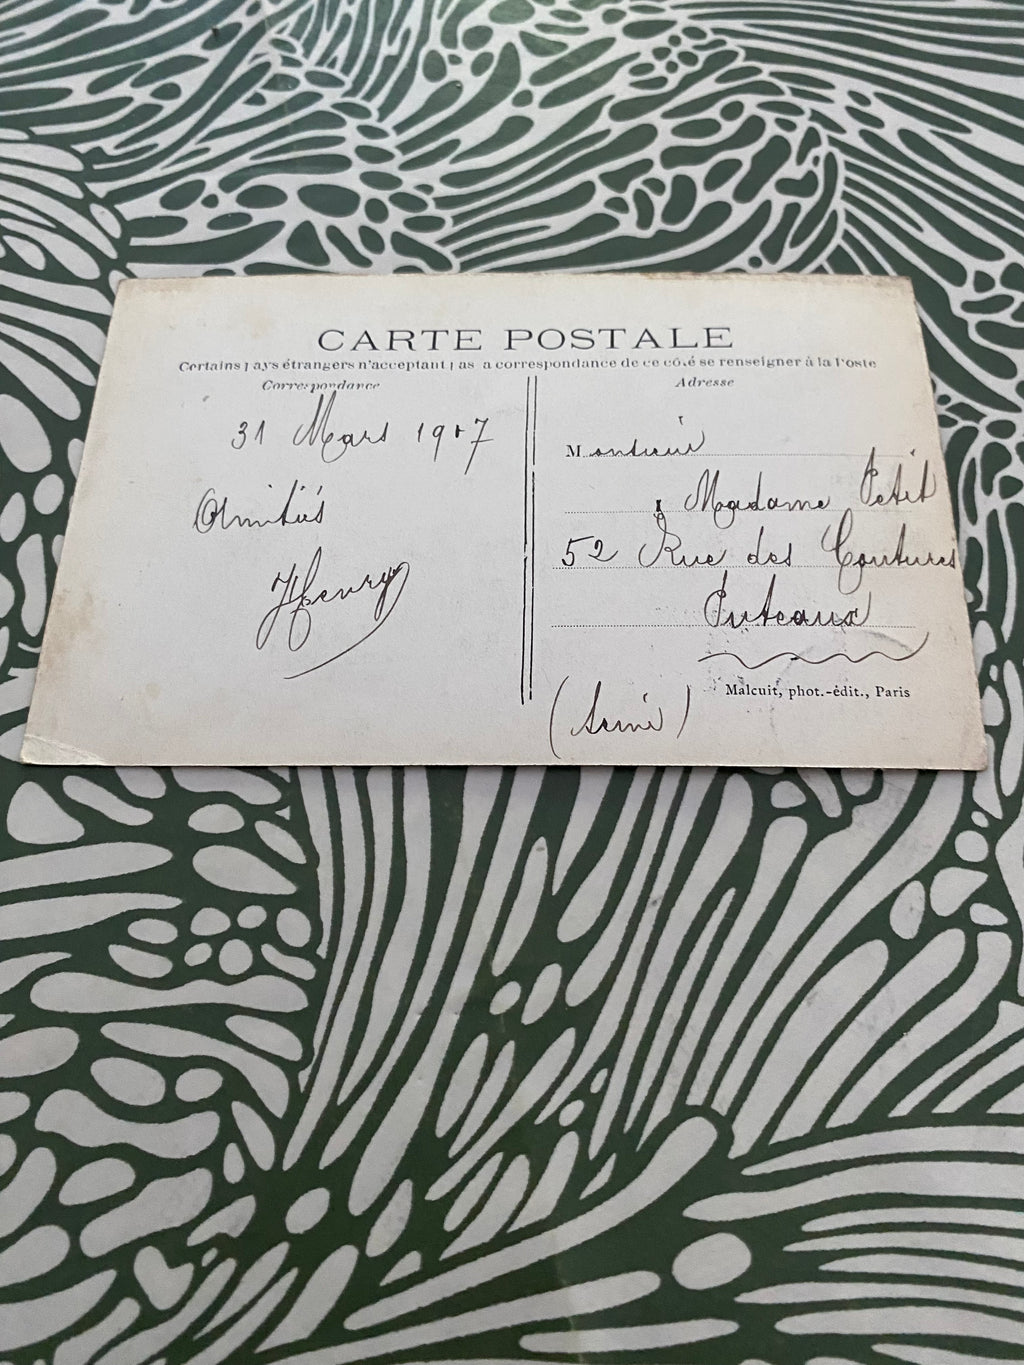 CARTE POSTALE
Certains pays étrangers n'acceptent pas la correspondance de ce côté se renseigner à la Poste
Correspondance
31 Mars 1907
Amitiés
Henry
Adresse
Monsieur
& Madame Petit
52 Rue des Coutures
Puteaux
(Seine)
Malcuit, phot.-édit., Paris